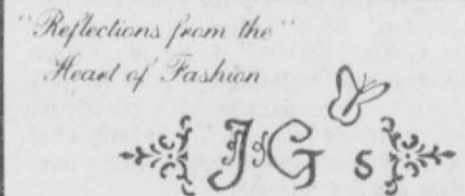 "Reflections from the"
Heart of Fashion
J&G s